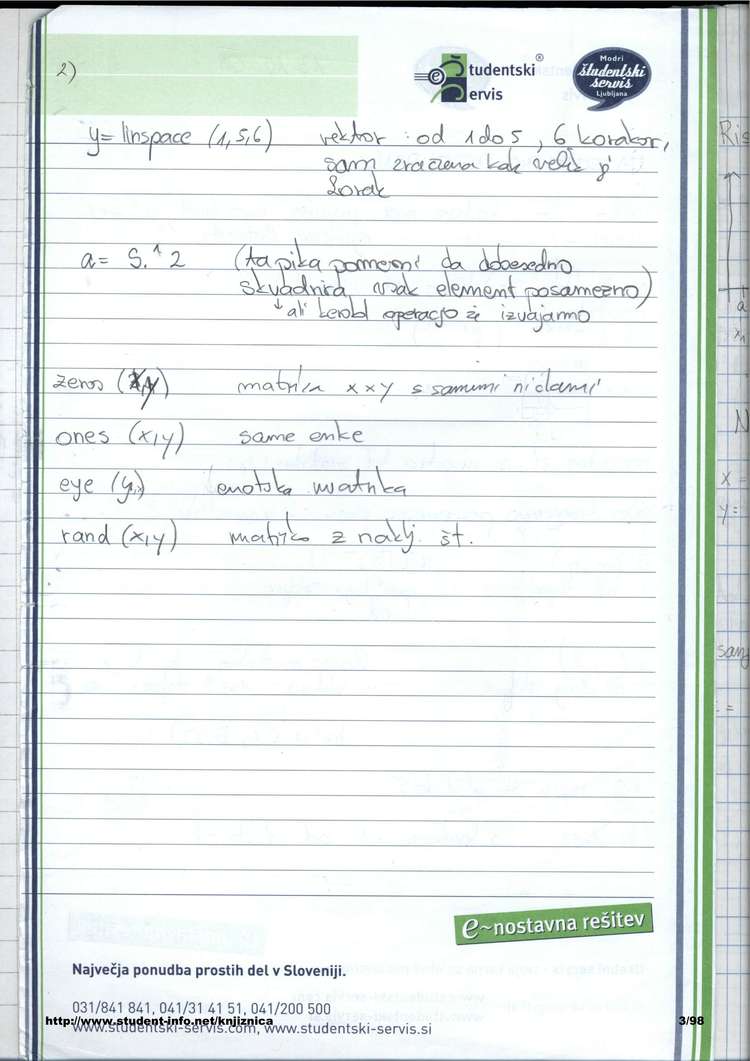 2)
Študentski® Servis
Modri študentski servis Ljubljana
y= linspace (1,5,6) vektor : od 1 do 5 , 6 korakov,
sam zračuna kak velik j'
korak
a= S.^2 (ta pika pomeni da dobesedno
skvadrira vsak element posamezno)
↓ ali kerokol operacjo že izvajamo
zeros (x,y) matrika x x y s samimi ničlami
ones (x,y) same enke
eye (y,) enotska matrika
rand (x,y) matriko z naklj. št.
e~nostavna rešitev
Največja ponudba prostih del v Sloveniji.
031/841 841, 041/31 41 51, 041/200 500
http://www.student-info.net/knjiznica 3/98
www.studentski-servis.com, www.studentski-servis.si